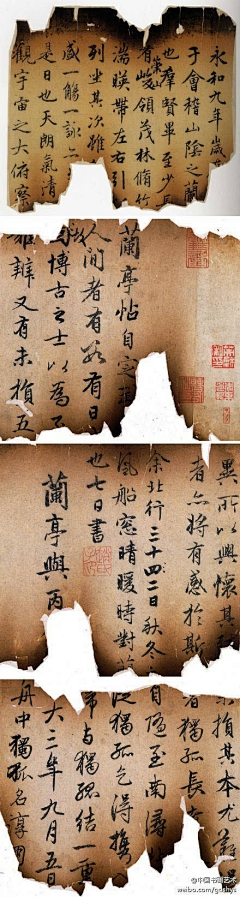 永和九年歲
于會稽山陰之蘭
也羣賢畢至少長
有崇山峻領茂林脩竹
湍暎帶左右引
列坐其次雖
盛一觴一詠
是日也天朗氣清
觀宇宙之大俯察
蘭亭帖自定
人間者有數有日
博古之士以爲
難辨又有未損五
異所以興懷其
者亦將有感於斯
余北行三十二日秋冬
風船窓晴暖時對
也七日書
蘭亭與丙
未損其本尤難
者獨孤長
自隨至南潯
從獨孤乞得攜
市與獨孤結一重
大三年九月五日
舟中獨孤名淳朋
@中国书画艺术